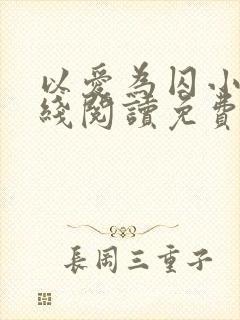 以愛為囚小
綫閱讀免費
長岡三重子